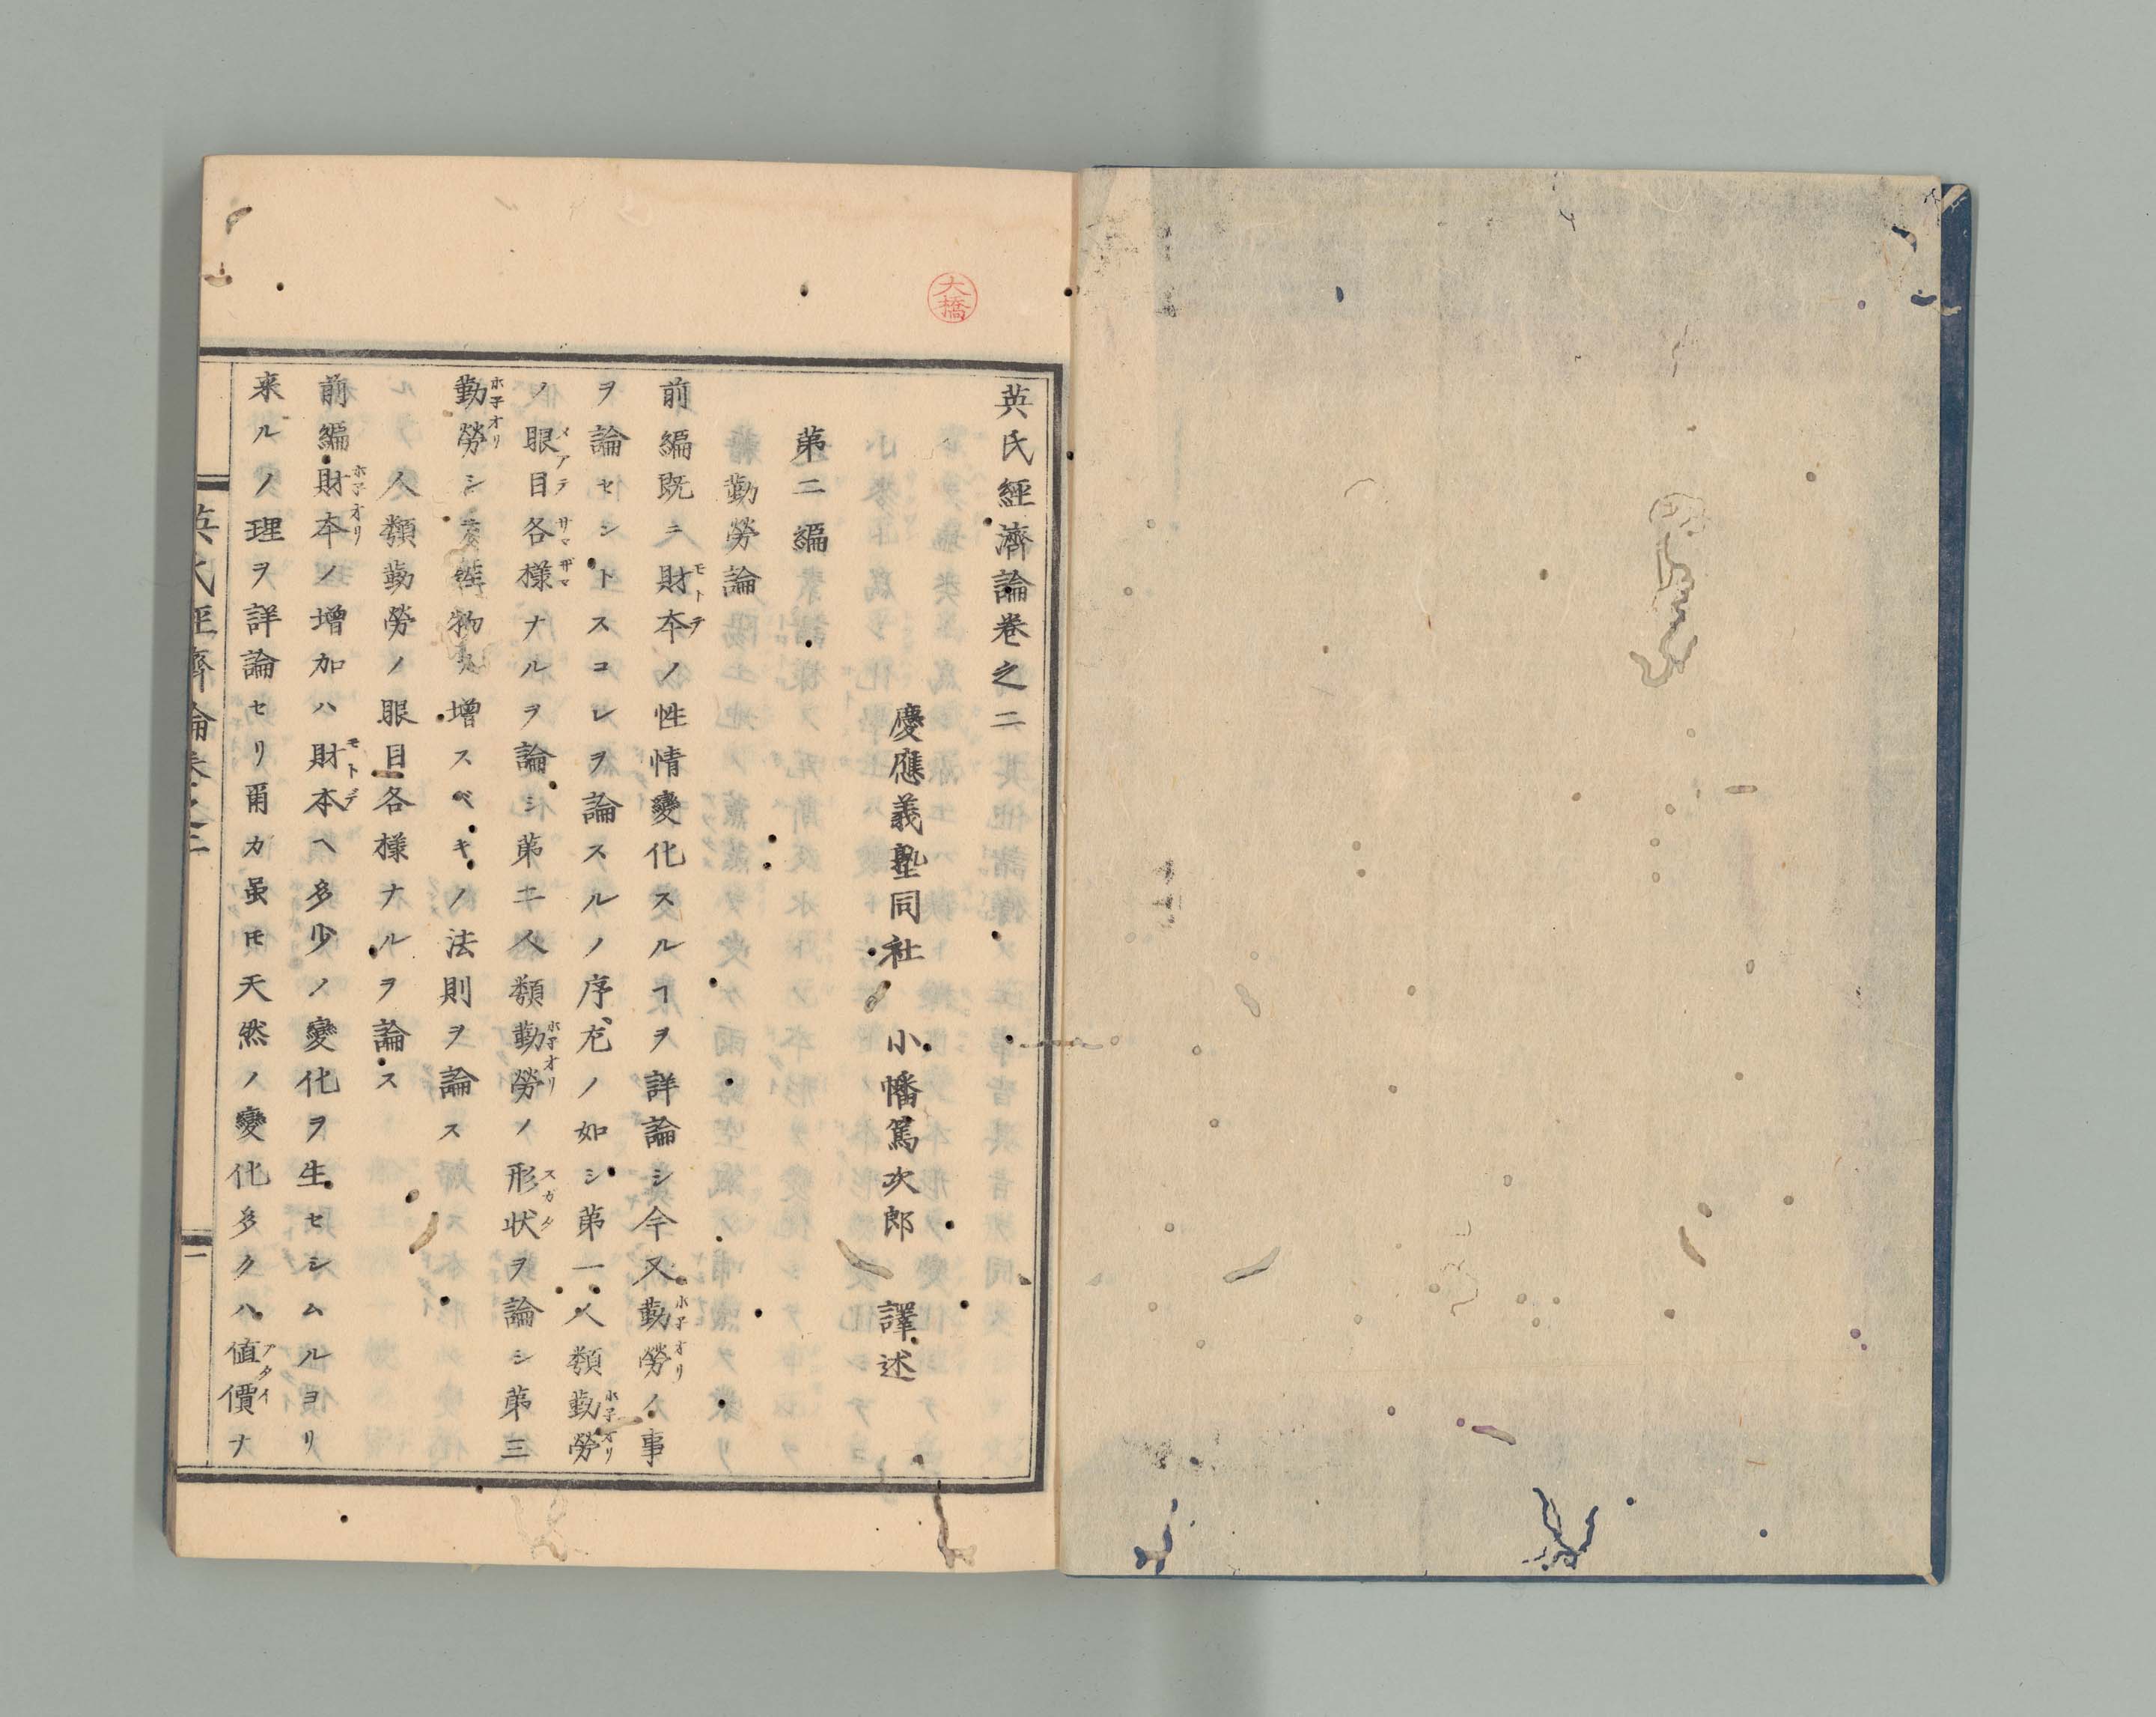 英氏經濟論卷之二
慶應義塾同社 小幡篤次郎 譯述
第二編
勤勞論
前編既ニ財本ノ性情變化スルヿヲ詳論シ今又勤勞ノ事
モトデ
ホ子オリ
ヲ論セントスコレヲ論スルノ序次ノ如シ第一人類勤勞
ホ子オリ
ノ眼目各様ナルヲ論シ第二人類勤勞ノ形状ヲ論シ第三
メアテ
サマザマ
ホ子オリ
スガタ
勤勞シ産物ヲ増スベキノ法則ヲ論ス
ホ子オリ
人類勤勞ノ眼目各様ナルヲ論ス
前編財本ノ増加ハ財本ヘ多少ノ變化ヲ生セシムルヨリ
ホ子オリ
モトデ
来ルノ理ヲ詳論セリ爾カ虽𪜈天然ノ變化多クハ値價ナ
アタイ
英氏經濟論卷之二
一
大橋